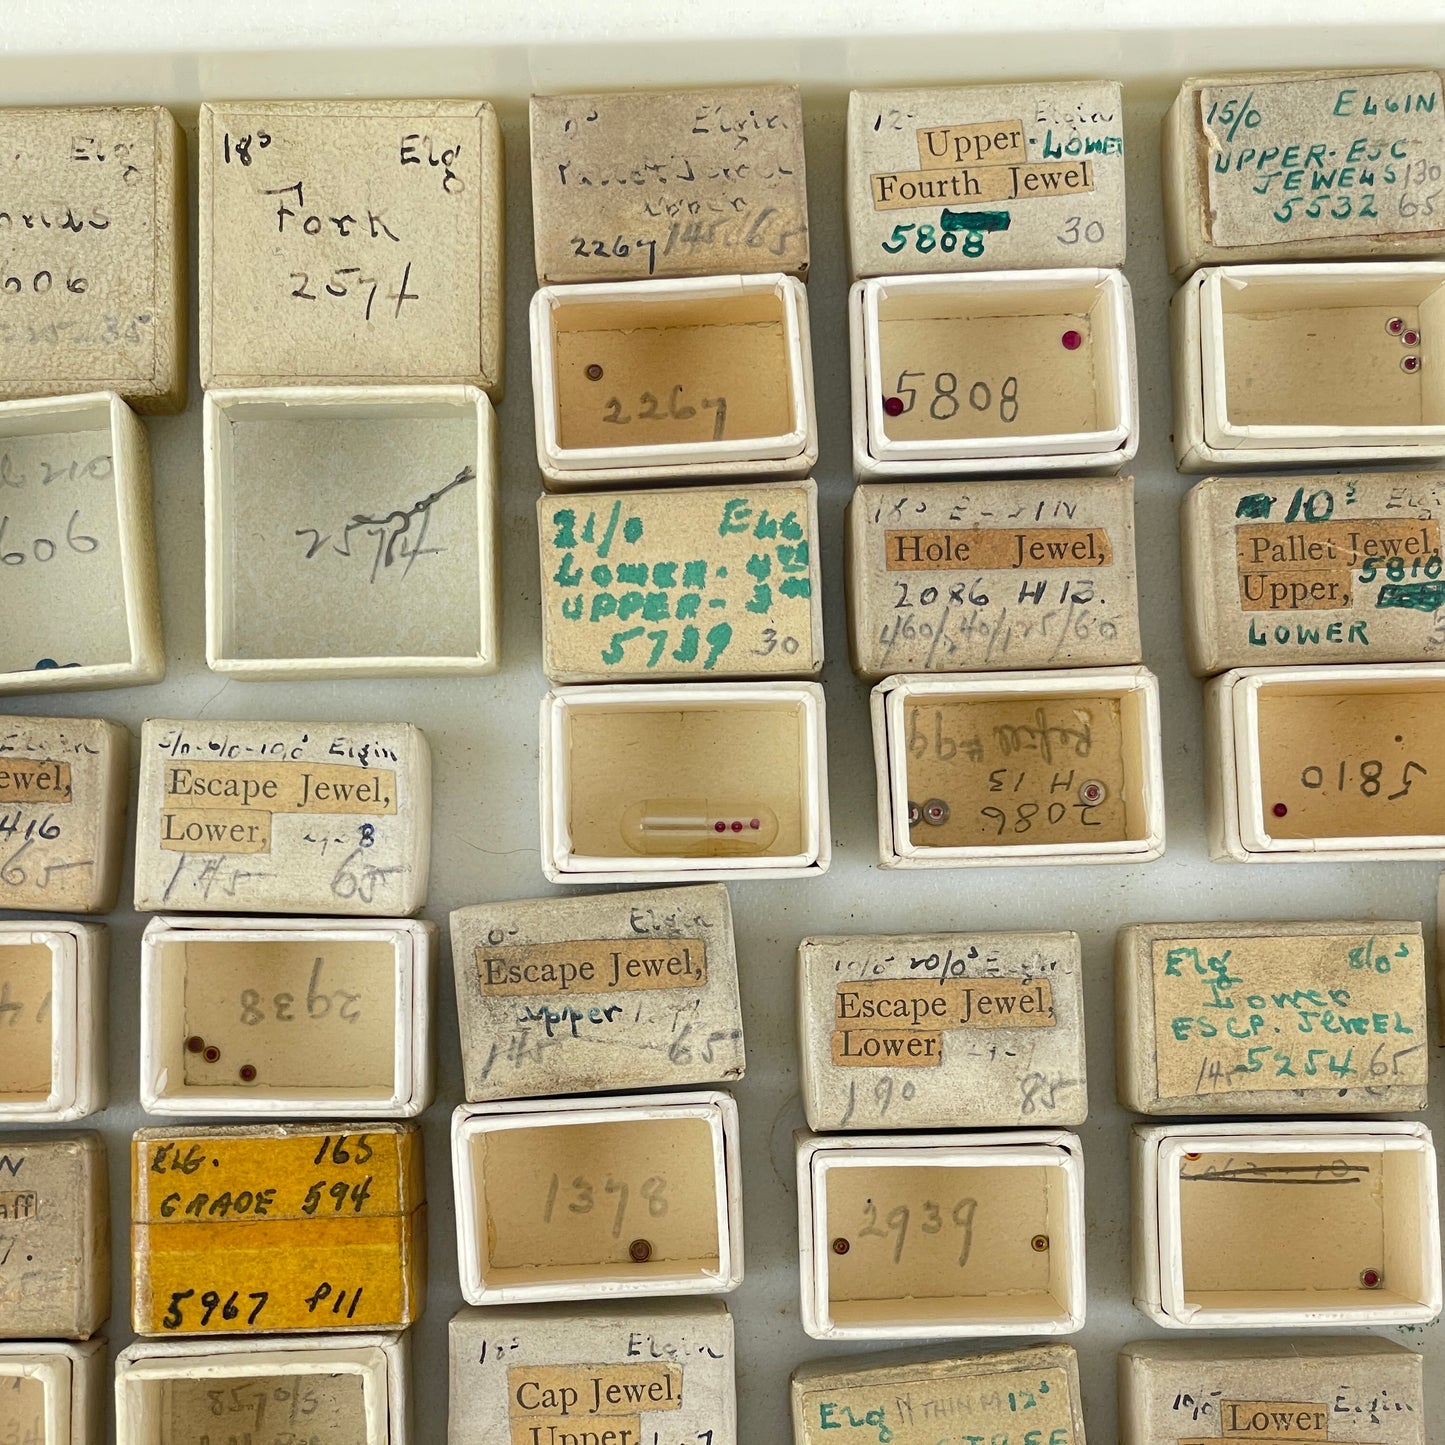 Elg
606
35
210
606
18s Elg
Fork
2574
2574
0s Elgin
Upper
2267 145 65
2267
12s Elgin
Upper - LOWER
Fourth Jewel
5808 30
5808
15/0 ELGIN
UPPER-ESC
JEWELS 130
5532 65
21/0 ELG
LOWER- 4th
UPPER- 3rd
5739 30
18s ELGIN
Hole Jewel,
2086 H 13.
Refill #99
H 13
2086
10s Elg
Pallet Jewel,
Upper, 5810
LOWER
5810
Elgin
ewel,
416
65
5/0-6/0-10/0s Elgin
Escape Jewel,
Lower,
145 65
2938
0s Elgin
Escape Jewel,
upper
145 65
1378
20/0s Elgin
Escape Jewel,
Lower,
190 85
2939
Elg 8/0s
Lower
ESCP. JEWEL
145 5254 65
aff
ELG. 16S
GRADE 594
5967 P11
18s Elgin
Cap Jewel,
Upper
Elg 12s
Lower Elgin